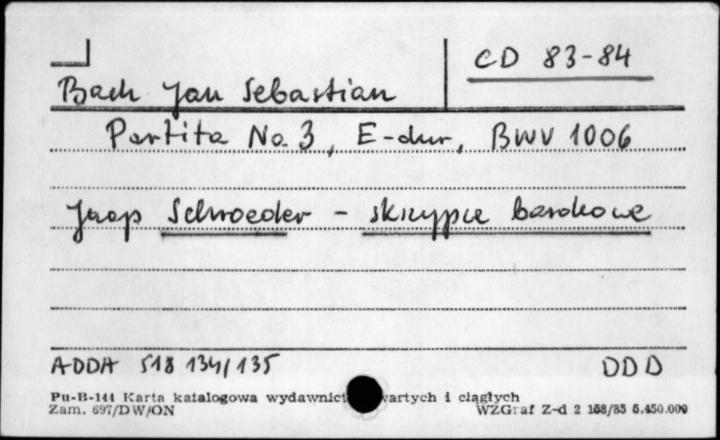 CD 83-84
Bach Jan Sebastian
Partita No. 3, E-dur, BWV 1006
Jaap Schroeder - skrzypce barokowe
ADDA 518 134/135 DDD
Pu-B-144 Karta katalogowa wydawnict wartych i ciągłych
Zam. 697/DW/ON WZGraf Z-d 2 168/85 5.450.000